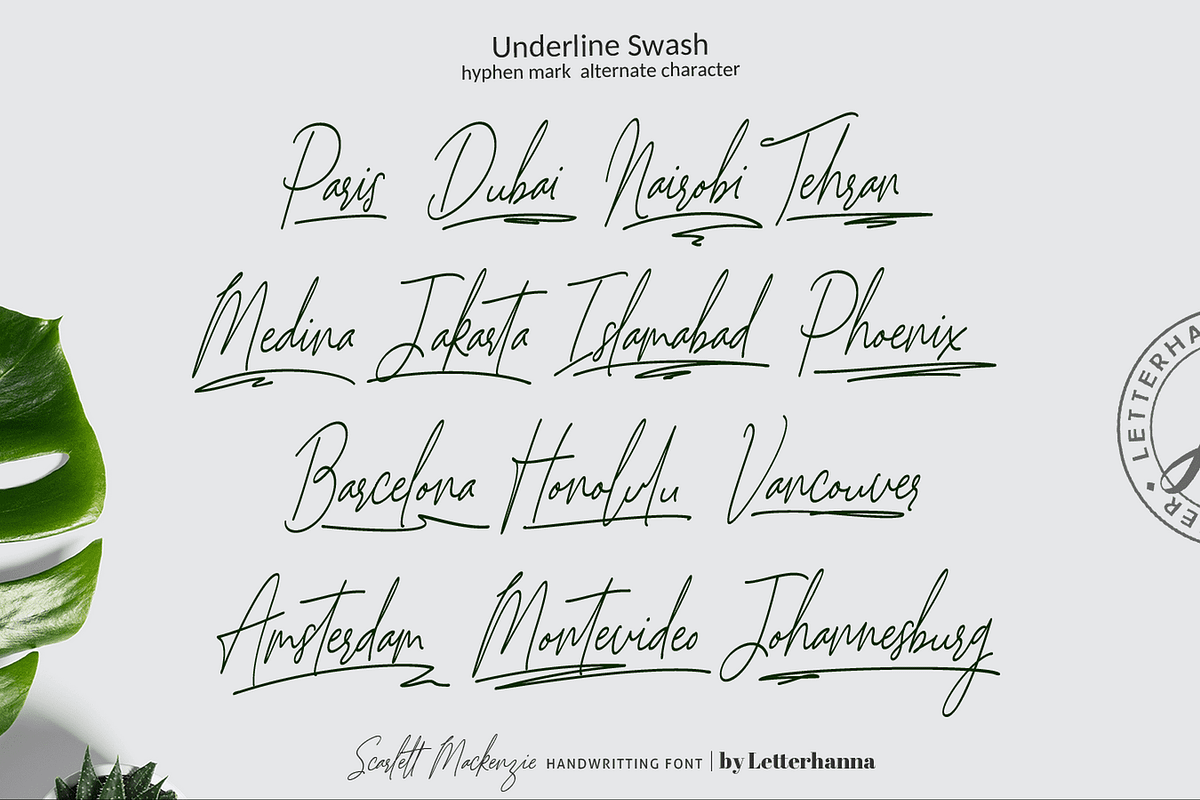 Underline Swash
hyphen mark alternate character
Paris Dubai Nairobi Tehran
Medina Jakarta Islamabad Phoenix
Barcelona Honolulu Vancouver
Amsterdam Montevideo Johannesburg
Scarlett Mackenzie HANDWRITTING FONT | by Letterhanna